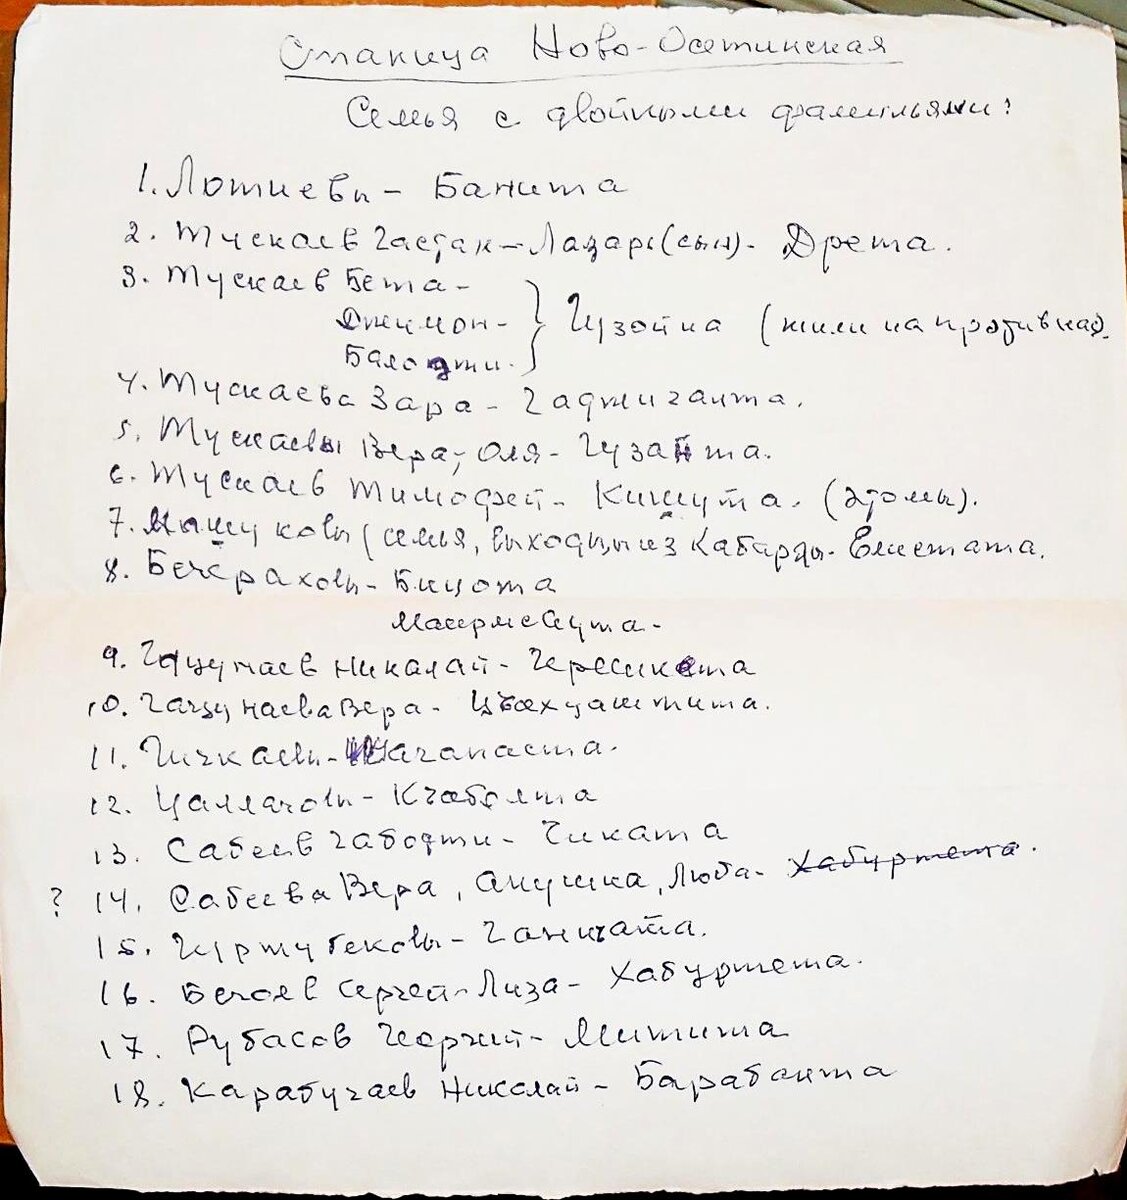 Станица Ново-Осетинская
Семья с двойными фамильями:
1. Лотиевы - Банита
2. Тускаев Гастан - Лазарь (сын) - Дрета.
3. Тускаев Бета -
Джимон -
Балоджи. } Гузойта (жили напротив нас).
4. Тускаева Зара - Гаджиганта.
5. Тускаевы Вера, Оля - Гузайта.
6. Тускаев Тимофей - Кишута. (2 домы).
7. Машуковы (семья, выходцы из Кабарды - Елистата.
8. Бекраховы - Бицота
9. Гацунаев Николай -
10. Гацунаева Вера - Цъахуаштита.
11. Гичкаевы -
12. Цаллаговы -
13. Сабеев Габоджи - Чиката
? 14. Сабеева Вера, Анушка, Люба - Хабуртета.
15. Гуртубековы -
16. Бегаев Сергей - Лиза - Хабуртета.
17. Рубасов Георгий - Митита
18. Карабугаев Николай - Барабанта